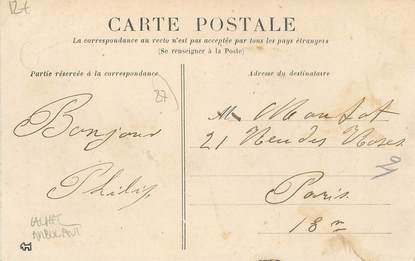 12€
CARTE POSTALE
La correspondance au recto n'est pas acceptée par tous les pays étrangers
(Se renseigner à la Poste)
Partie réservée à la correspondance
Adresse du destinataire
27
Bonjour
Philip
M. Monfot
21 Rue des Roses
Paris
18e
CACHET
AMBULANT